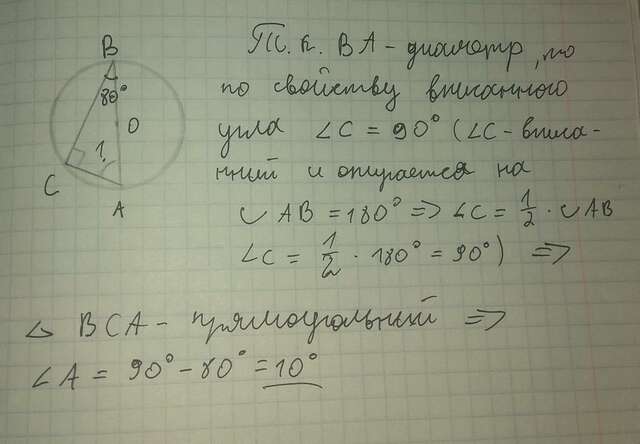 B
80°
O
1
C
A
Т.к. BA - диаметр, то
по свойству вписанного
угла ∠C = 90° (∠C - вписа-
нный и опирается на
◡ AB = 180° => ∠C = 1/2 · ◡ AB
∠C = 1/2 · 180° = 90°) =>
△ BCA - прямоугольный =>
∠A = 90° - 80° = 10°